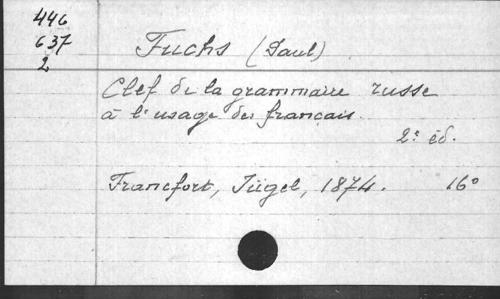 446
637
2
Fuchs (Paul)
Clef de la grammaire russe
à l'usage des français.
2e éd.
Francfort, Jügel, 1874. 16°